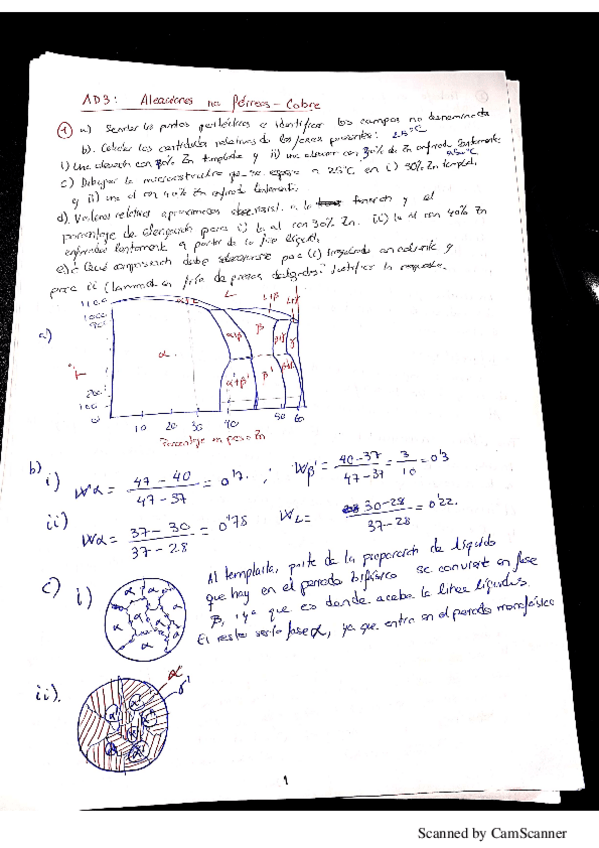 AD3: Aleaciones no Férreas - Cobre
1 a) Señalar los puntos peritécticos e identificar los campos no denominados
b). Calcular las cantidades relativas de las fases presentes: 25ºC
i) Una aleación con 40% Zn templada y ii) una aleación con 30% de Zn enfriada lentamente 950ºC
c) Dibujar la microestructura que se espera a 25ºC en i) 30% Zn templada
y ii) una al con 40% Zn enfriada lentamente.
d). Valores relativos aproximados a la tensión y el
porcentaje de elongación para i) la al con 30% Zn. ii) la al con 40% Zn
enfriadas lentamente a partir de la fase líquida.
e) ¿Qué composición debe seleccionarse para (i) en caliente y
para ii (laminado en frío de piezas delgadas? Justificar la respuesta.
a)
1100
1000
200
100
0
L
L+β
α
α+β
β
γ
α+β'
β'
10 20 30 40 50 60
Porcentaje en peso Zn
b) i) Wα = 47 - 40 / 47 - 37 = 0'7. ; Wβ' = 40-37 / 47-37 = 3 / 10 = 0'3
ii) Wα = 37 - 30 / 37 - 28 = 0'78 WL = 30-28 / 37-28 = 0'22.
c) i) α α α α α α α
Al templarla, parte de la proporción de líquido
que hay en el periodo bifásico se convierte en fase
β, ya que es donde acaba la línea líquidus.
El resto sería fase α, ya que entra en el periodo monofásico
ii). α α α α α
α
1
Scanned by CamScanner